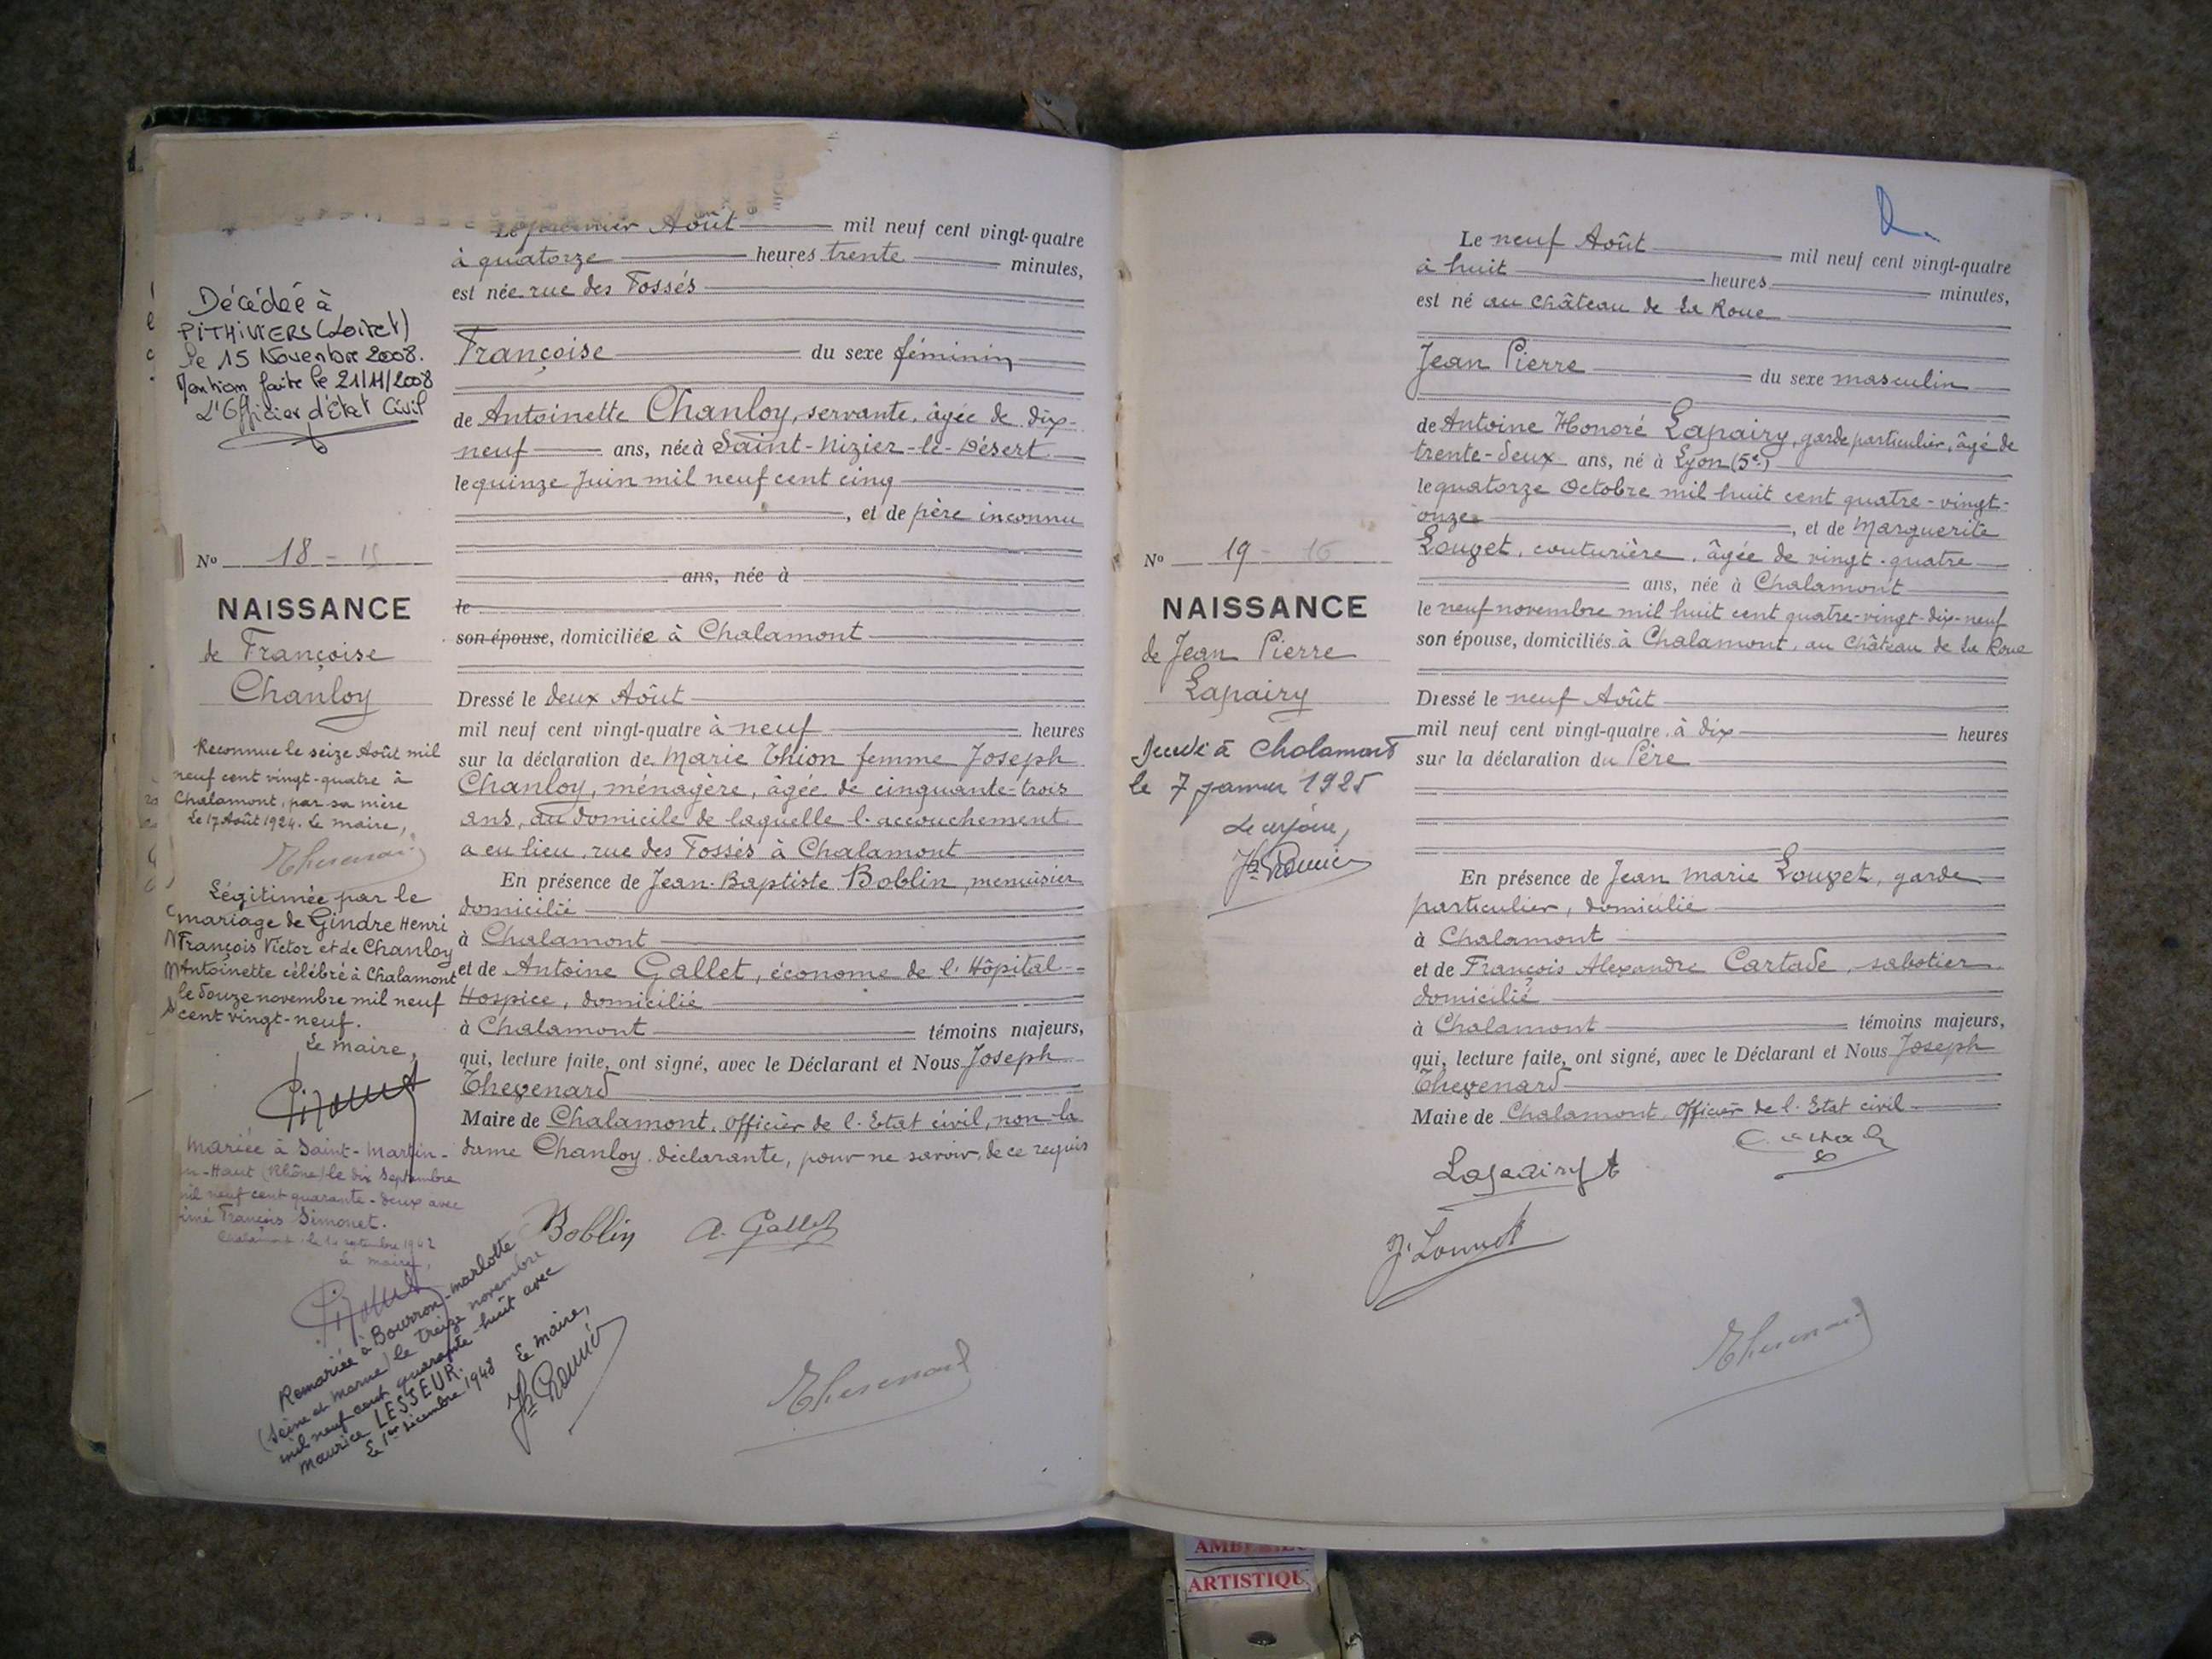 Décédée à
PITHIVIERS (Loiret)
le 15 Novembre 2008.
Mention faite le 21/11/2008
L'Officier d'Etat Civil
No 18 - 15
NAISSANCE
de Françoise
Chanloy
Reconnue le seize Août mil
neuf cent vingt-quatre à
Chalamont, par sa mère
Le 17 Août 1924. Le maire,
Thevenard
Légitimée par le
mariage de Gindre Henri
François Victor et de Chanloy
Antoinette célébré à Chalamont
le douze novembre mil neuf
cent vingt-neuf.
Le maire,
Mariée à Saint-Martin-
en-Haut (Rhône) le dix Septembre
mil neuf cent quarante-deux avec
Aimé François Simonet.
Chalamont, le septembre 1942
Le maire,
Remariée à Bourron-Marlotte
(Seine et Marne) le treize novembre
mil neuf cent quarante-huit avec
Maurice LESSEUR.
Le 1er décembre 1948 Le Maire,
Le premier Août mil neuf cent vingt-quatre
à quatorze heures trente minutes,
est née rue des Fossés
Françoise du sexe féminin
de Antoinette Chanloy, servante, âgée de dix-
neuf ans, née à Saint-Nizier-le-Désert
le quinze Juin mil neuf cent cinq
, et de père inconnu
ans, née à
le
son épouse, domiciliée à Chalamont
Dressé le deux Août
mil neuf cent vingt-quatre à neuf heures
sur la déclaration de Marie Thion femme Joseph
Chanloy, ménagère, âgée de cinquante-trois
ans, au domicile de laquelle l'accouchement
a eu lieu, rue des Fossés à Chalamont
En présence de Jean-Baptiste Boblin, menuisier
domicilié
à Chalamont
et de Antoine Gallet, économe de l'Hôpital-
Hospice, domicilié
à Chalamont témoins majeurs,
qui, lecture faite, ont signé, avec le Déclarant et Nous Joseph
Thevenard
Maire de Chalamont, Officier de l'Etat civil, non la
dame Chanloy déclarante, pour ne savoir, de ce requis
Boblin A. Gallet
Thevenard
No 19 - 16
NAISSANCE
de Jean Pierre
Lapairy
Décédé à Chalamont
le 7 janvier 1925
Le neuf Août mil neuf cent vingt-quatre
à huit heures minutes,
est né au Château de la Roue
Jean Pierre du sexe masculin
de Antoine Honoré Lapairy, garde particulier, âgé de
trente-deux ans, né à Lyon (5e)
le quatorze Octobre mil huit cent quatre-vingt-
onze , et de Marguerite
Louget, couturière, âgée de vingt-quatre
ans, née à Chalamont
le neuf novembre mil huit cent quatre-vingt-dix-neuf
son épouse, domiciliés à Chalamont, au Château de la Roue
Dressé le neuf Août
mil neuf cent vingt-quatre, à dix heures
sur la déclaration du Père
En présence de Jean Marie Louget, garde
particulier, domicilié
à Chalamont
et de François Alexandre Cartade, sabotier
domicilié
à Chalamont témoins majeurs,
qui, lecture faite, ont signé, avec le Déclarant et Nous Joseph
Thevenard
Maire de Chalamont, Officier de l'Etat civil
Thevenard
ARTISTIQU